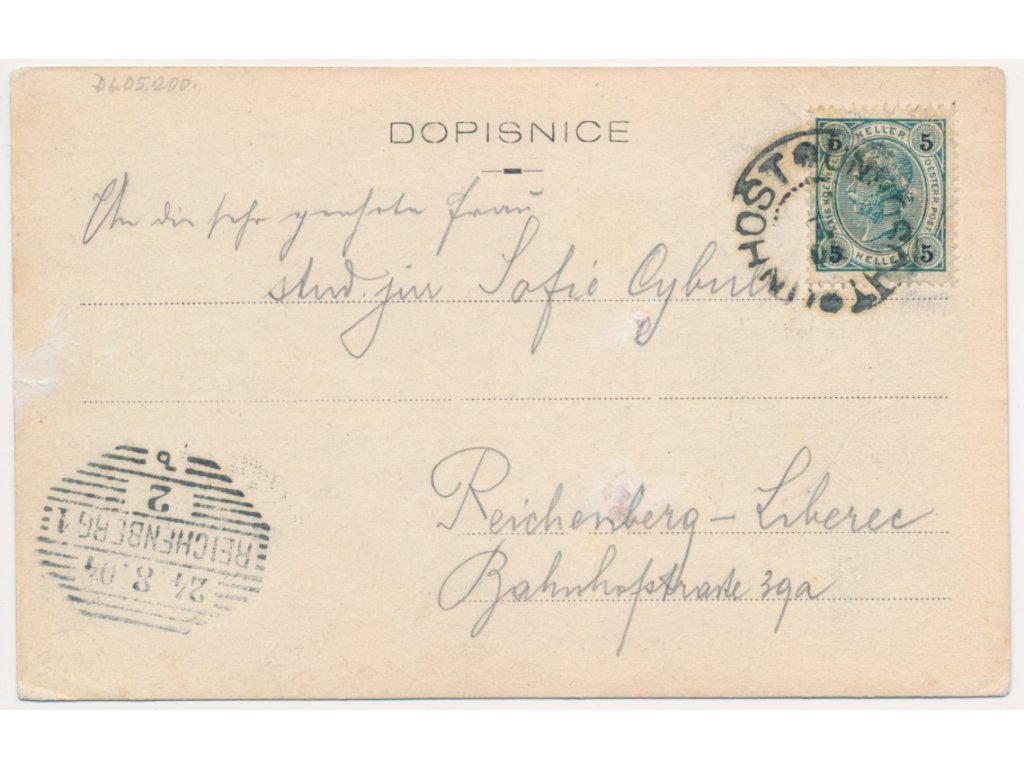 DL05.200.
DOPISNICE
An die sehr geehrte Frau
stud. jur Sofie
Reichenberg – Liberec
Bahnhofstraße 39a
5 HELLER 5
KAIS. KOENIGL. OESTERR. POST
5 HELLER 5
REICHENBERG 1
2
24. 8. 04